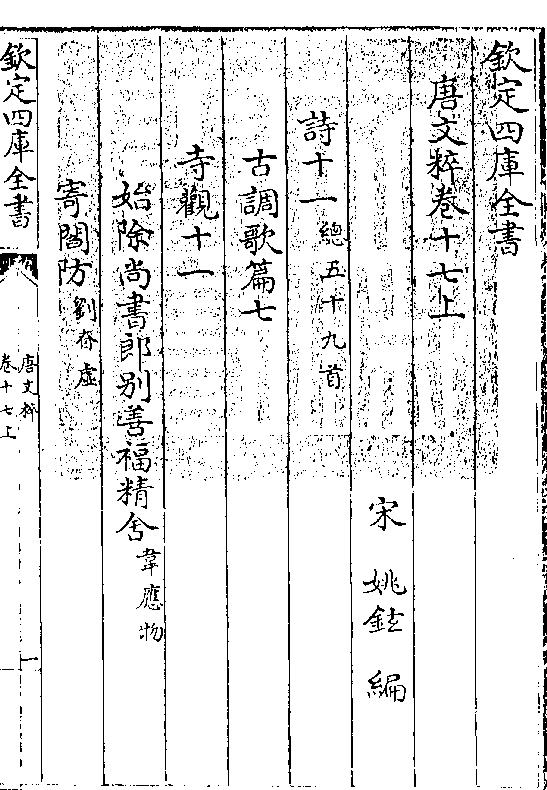 欽定四庫全書
唐文粹卷十七上
宋 姚鉉 編
詩十一 總五十九首
古調歌篇七
寺觀十一
始除尚書郎别善福精舍 韋應物
寄閻防 劉眘虛
欽定四庫全書
唐文粹
卷十七上
一